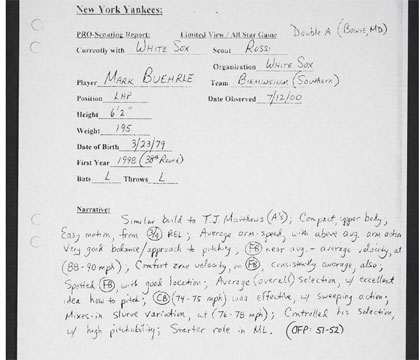 New York Yankees:
PRO-Scouting Report: Limited View / All Star Game Double A (Bowie, MD)
Currently with White Sox Scout Rossi
Organization White Sox
Player Mark Buehrle Team Birmingham (Southern)
Position LHP Date Observed 7/12/00
Height 6'2"
Weight 195
Date of Birth 3/23/79
First Year 1998 (38th Round)
Bats L Throws L
Narrative:
Similar build to T.J. Matthews (A's); Compact upper body,
Easy motion, from 3/4 REL; Average arm-speed, with above avg. arm action
Very good balance/approach to pitching; FB near avg. - average velocity, at
(88-90 mph), Comfort zone velocity, on FB, consistently average, also;
Spotted FB with good location; Average (overall) selection, w/ excellent
idea how to pitch; CB (74-75 mph) was effective, w/ sweeping action;
Mixes-in slurve variation, at (76-78 mph); Controlled his selection,
w/ high pitchability; Starter role in ML. (OFP: 51-52)